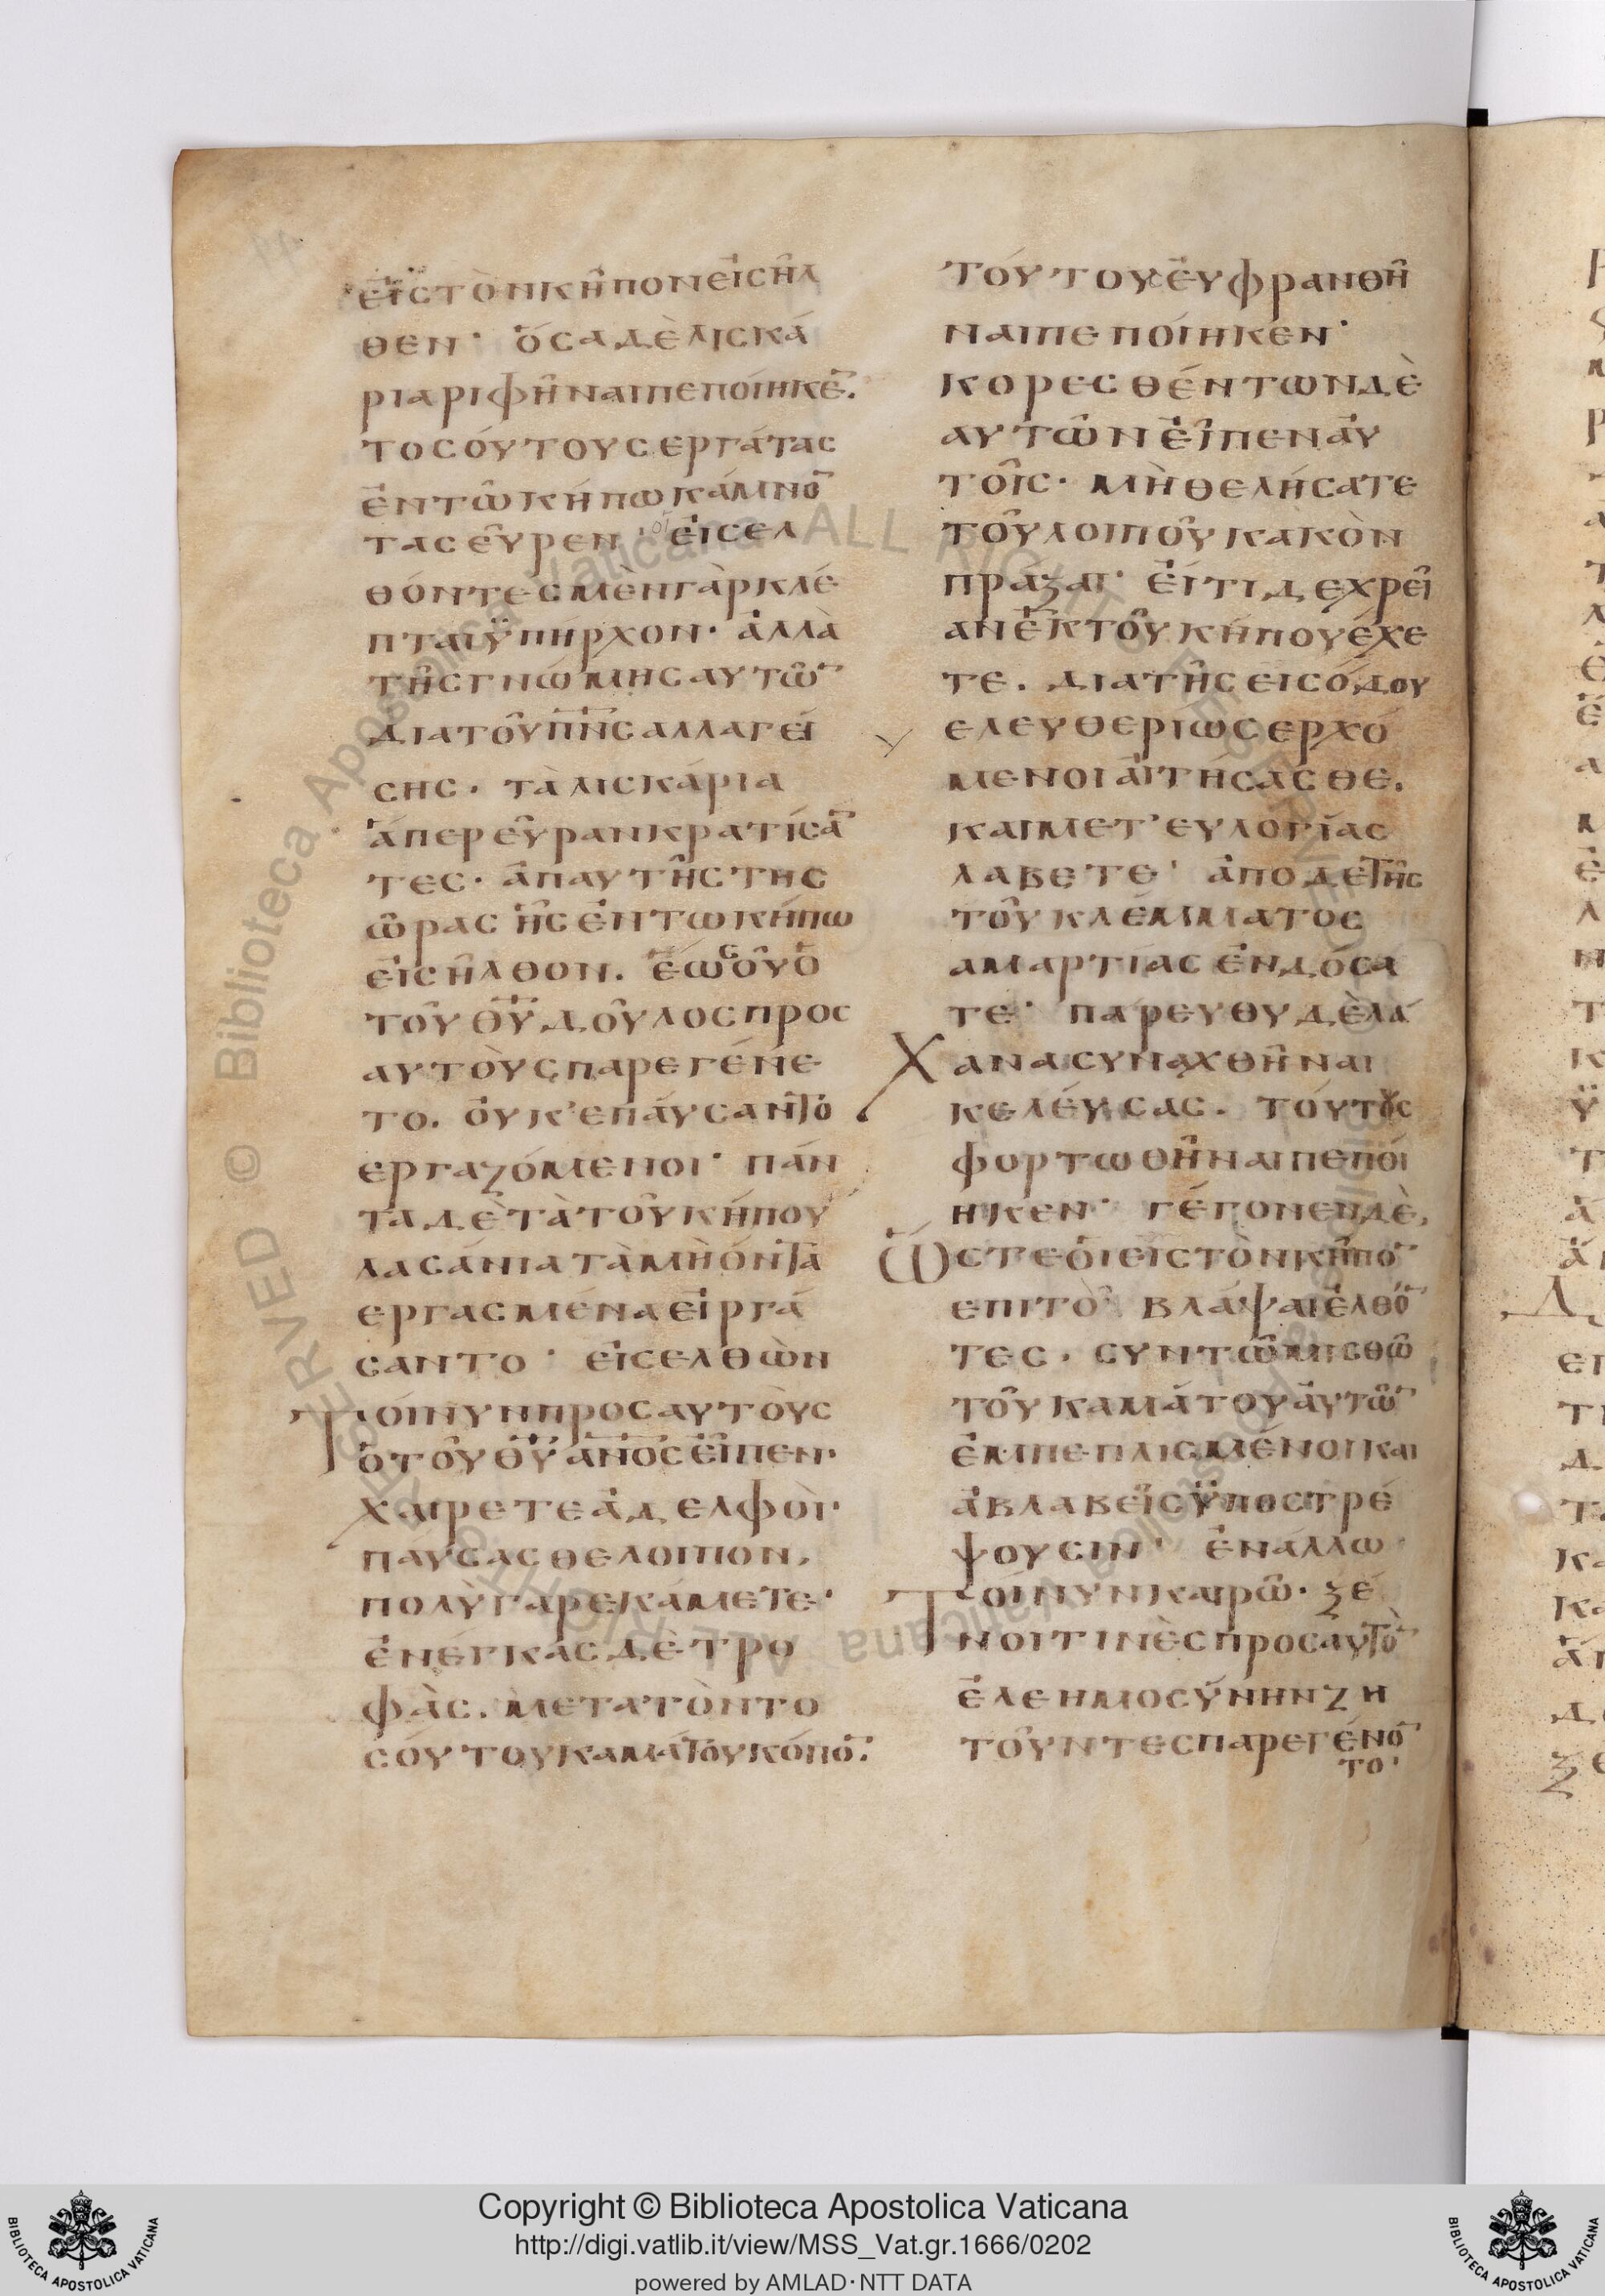 εἰστὸνκῆπονεἰσῆλ
θεν· ὅσαδὲλισκά
ριαριφῆναιπεποίηκε̅.
τοσούτουςεργάτας
ἐντῶκήπωκάμνο̅
ταςεὗρεν· οἱ εἰσελ
θόντεςμὲνγὰρκλέ
πταιϋπῆρχον· ἀλλὰ
τῆςγνώμηςαυτῶ̅
διατοῦπ̅ν̅ςαλλαγεί
σης· τὰλισκάρια
ἅπερεὗρανκρατίσα̅
τες· ἀπαυτῆςτης
ὥραςἧςἐντωκήπω
εἰσῆλθον. ἕωςοὗὁ
τοῦθ̅υ̅δοῦλοςπρος
αυτὸυςπαρεγένε
το. οὐκ'επάυσαντο
εργαζόμενοι· πάν
ταδὲτὰτοῦκήπου
λασάνιατὰμὴόντα
εργασμέναεἰργά
σαντο· εἰσελθὼν
Τοίνυνπροςαυτὸυς
ὁτοῦθ̅υ̅α̅ν̅ο̅ς̅εἶπεν·
χαιρετεἀδελφὸι·
παύσασθελοιπον,
πολὺγὰρεκάμετε·
ἐνέγκαςδὲτρο
φὰς. μετατὸντο
σούτουκαμάτουκόπο̅.
τούτουςἐυφρανθῆ
ναιπεποίηκεν·
κορεσθέντωνδὲ
αυτῶνεἶπεναὐ
τοῖς· μὴθελήσατε
τοῦλοιποῦκακὸν
πράξαι· ἐίτιδεχρεί
ανἐκτοῦκήπουέχε
τε. διατῆςεισόδου
ελευθεριωςερχό
μενοιἀιτήσασθε.
καιμετ'ευλογίας
λαβετε· ἀποδετῆς
τοῦκλέμματος
αμαρτίαςἐνδόσα
τε· πάρευθυδὲλά
Χανασυναχθῆναι
κελέυσας. τούτους
φορτωθῆναιπεποί
ηκεν· γέγονενδὲ,
Ὥστεὁιεἰστὸνκῆπο̅
επιτὸ βλάψαιἐλθό̅
τες· συντῶμισθῶ
τοῦκαμάτουἀυτῶ̅
ἐμπεπλισμένοικαι
ἀβλαβεῖςϋποστρέ
ψουσιν· ἐνάλλω
Τοίνυνκαιρῶ· ξέ
νοιτινὲςπροςαυτὸ̅
ἐλεημοσύνηνζη
τοῦντεςπαρεγένο̅
το·
Copyright © Biblioteca Apostolica Vaticana
http://digi.vatlib.it/view/MSS_Vat.gr.1666/0202
powered by AMLAD·NTT DATA
BIBLIOTECA APOSTOLICA VATICANA
BIBLIOTECA APOSTOLICA VATICANA